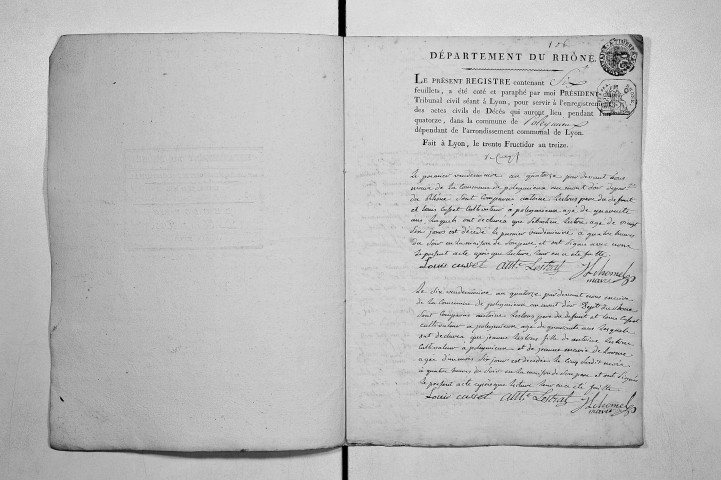 106
DÉPARTEMENT DU RHÔNE.
LE PRÉSENT REGISTRE contenant Six
feuillets, a été coté et paraphé par moi PRÉSIDENT
Tribunal civil séant à Lyon, pour servir à l'enregistrement
des actes civils de Décès qui auront lieu pendant l'an
quatorze, dans la commune de Poleymieux
dépendant de l'arrondissement communal de Lyon.
Fait à Lyon, le trente Fructidor an treize.
Le premier vendemiaire an quatorze par devant nous
maire de la commune de poleymieux au mont d'or depart
du Rhône sont comparus antoine Lestras pere du defunt
et Louis cusset cultivateur a poleymieux agé de quarante
ans lesquels ont declarés que Sébastien Lestra age de vingt
jours est décédé le premier vendemiaire a quatre heures
du Soir en la maison de Son pere, et ont signé avec nous
le present acte après que lecture leur en a été faitte
Louis cusset ant Lestrat
maire
Le Six vendemiaire an quatorze par devant nous maire
de la commune de poleymieux au mont d'or Dept du Rhône
sont comparus antoine Lestras pere du defunt et Louis Cusset
cultivateur a poleymieux age de quarante ans lesquels
ont declarés que jeanne Lestra fille de antoine Lestra
cultivateur a poleymieux et de jeanne
agée d'un mois Six jours est décédée le cinq
a quatre heures du Soir en la maison de Son pere et ont Signés
le present acte après que lecture leur en a été faitte
Louis cusset ant Lestrat
maire